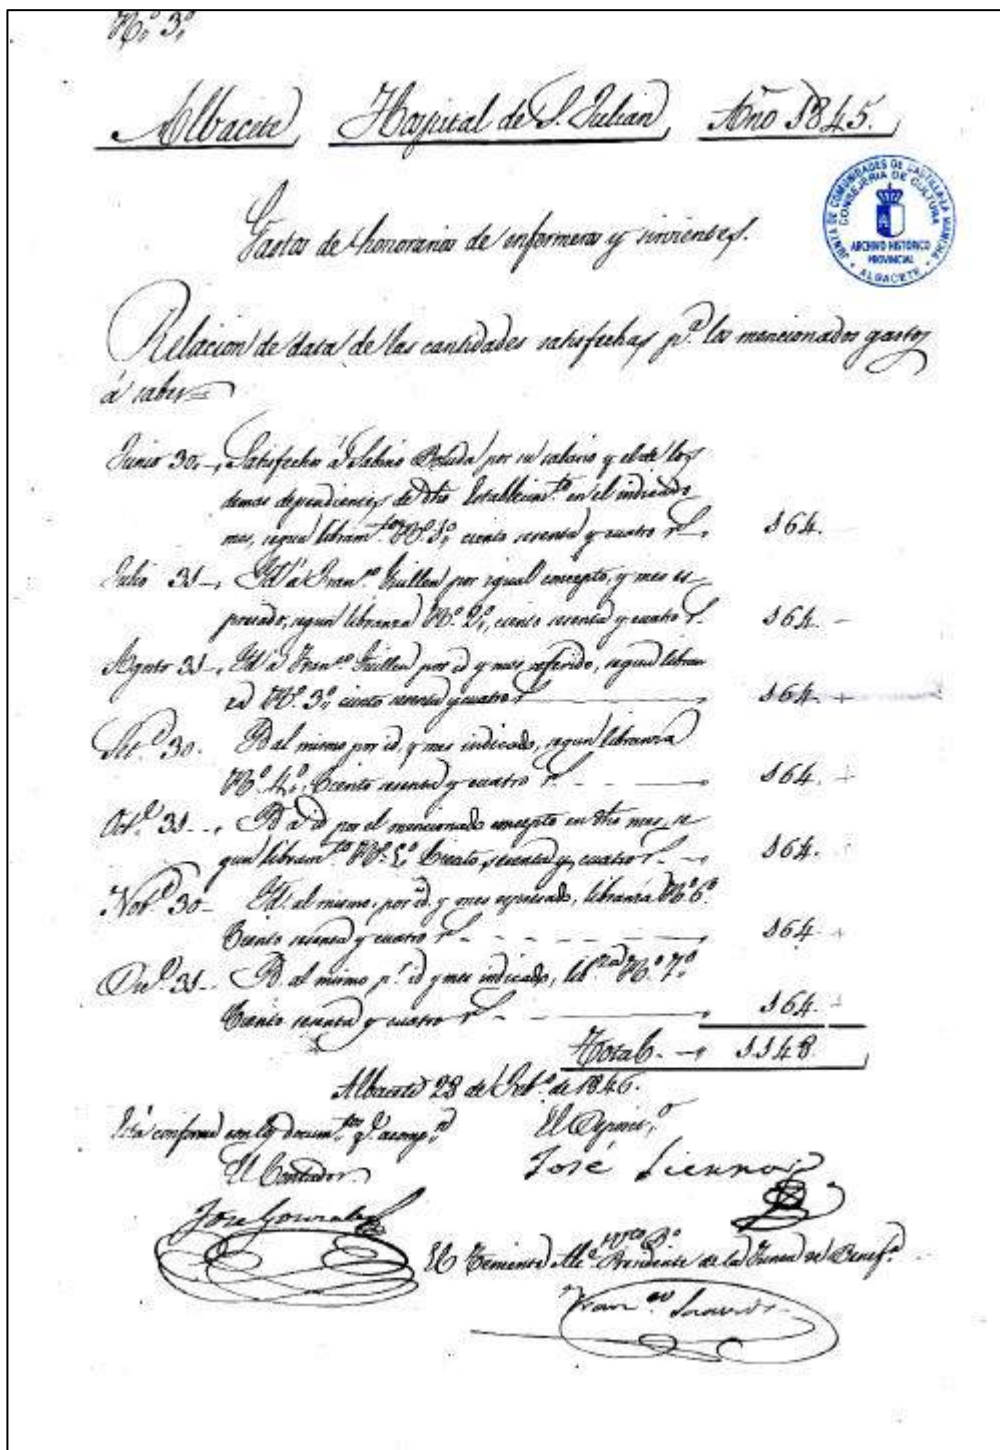 Nº 3º
Albacete Hospital de S. Julian Año 1845.
JUNTA DE COMUNIDADES DE CASTILLA-LA MANCHA
CONSEJERIA DE CULTURA
ARCHIVO HISTORICO
PROVINCIAL
ALBACETE
Gastos de honorarios de enfermeros y sirvientes.
Relacion de data de las cantidades satisfechas pª los mencionados gastos
á saber=
Junio 30 Satisfechos á Sabino por su salario y el de los
demas dependientes de dho Establecimto en el indicado
mes, segun libramto Nº 1º, ciento sesenta y cuatro rs 164.
Julio 31 Id á Franco Guillen por igual concepto, y mes es-
presado, segun libranza Nº 2º, ciento sesenta y cuatro rs. 164.
Agosto 31 Id á Franco Guillen por id y mes referido, segun libran
za Nº 3º ciento sesenta y cuatro rs 164.
Setº 30. Id al mismo por id. y mes indicado, segun libranza
Nº 4º, Ciento sesenta y cuatro rs 164.
Octe 31 Id á id por el mencionado concepto en dho mes, se-
gun libramto Nº 5º Ciento, sesenta y cuatro rs 164.
Nove 30 Id. al mismo, por id. y mes espresado, libranza Nº 6º
Ciento sesenta y cuatro rs 164.
Dice 31 Id. al mismo pr id y mes indicado, libza Nº 7º
Ciento sesenta y cuatro rs 164.
Total. 1148.
Albacete 28 de Febº de 1846.
Está conforme con los documtos qe acompn
El Contador.
José Gonzalez
José
Vto Bº
El Teniente Alce Presidente de la Junta de Benefª
Franco